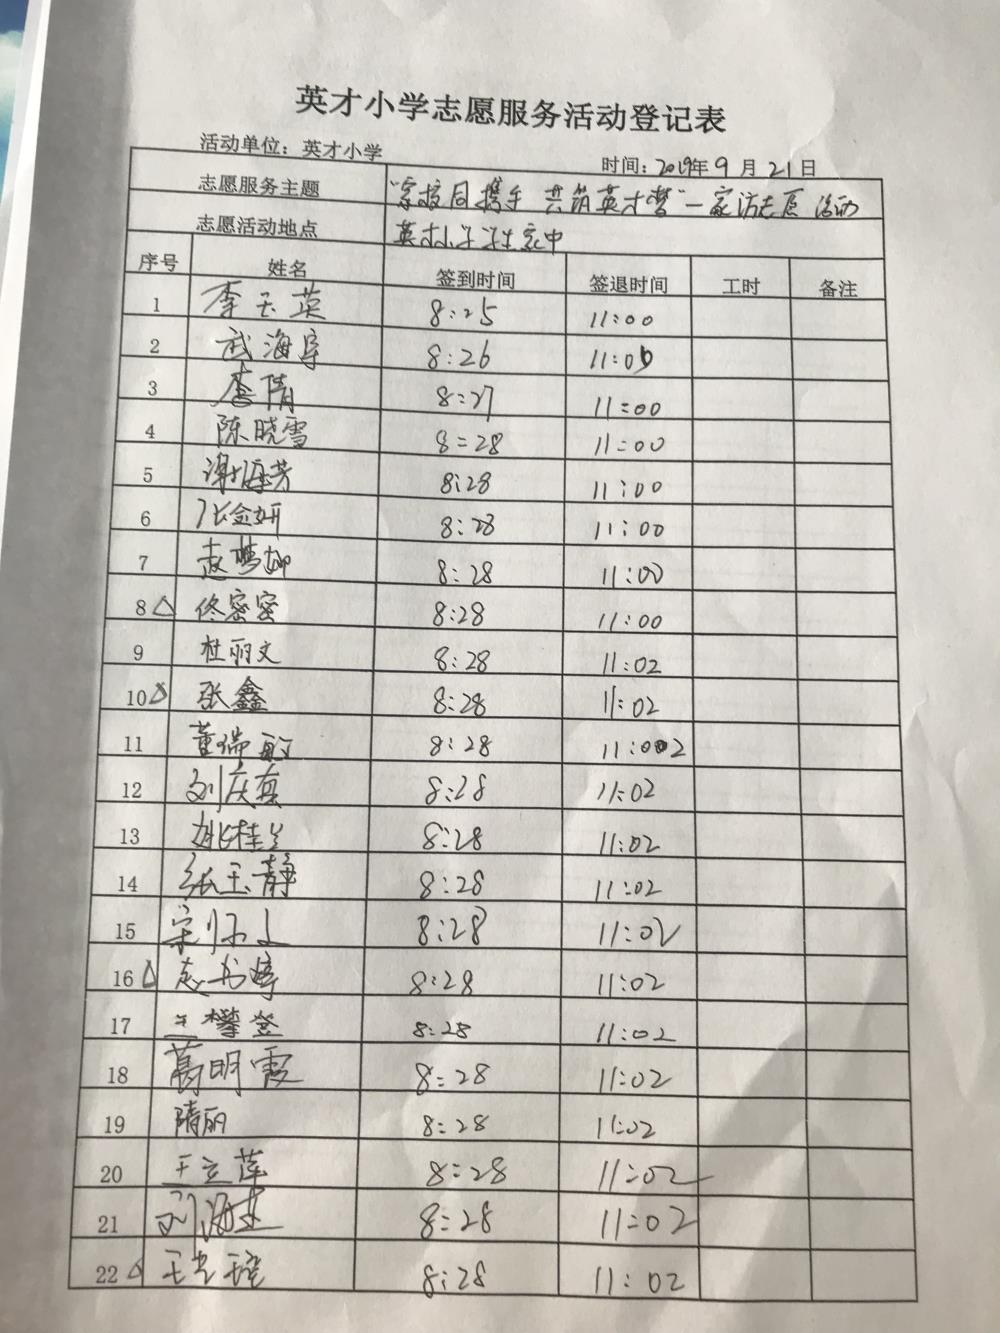 英才小学志愿服务活动登记表
活动单位：英才小学 时间：2019年9月21日
志愿服务主题 "家校同携手 共筑英才梦"—家访志愿活动
志愿活动地点 英才小学学生家中
序号 姓名 签到时间 签退时间 工时 备注
1 李玉英 8:25 11:00
2 武海 8:26 11:00
3 李倩 8:27 11:00
4 陈晓雪 8:28 11:00
5 谢海芳 8:28 11:00
6 张金妍 8:28 11:00
7 赵梦娜 8:28 11:00
8△ 佟密密 8:28 11:00
9 杜丽文 8:28 11:02
10△ 张鑫 8:28 11:02
11 董瑞 8:28 11:002
12 刘庆真 8:28 11:02
13 姚桂兰 8:28 11:02
14 张玉静 8:28 11:02
15 宋 8:28 11:02
16△ 志书婷 8:28 11:02
17 王攀登 8:28 11:02
18 葛明霞 8:28 11:02
19 隋丽 8:28 11:02
20 王立莲 8:28 11:02
21 刘海 8:28 11:02
22△ 王 8:28 11:02